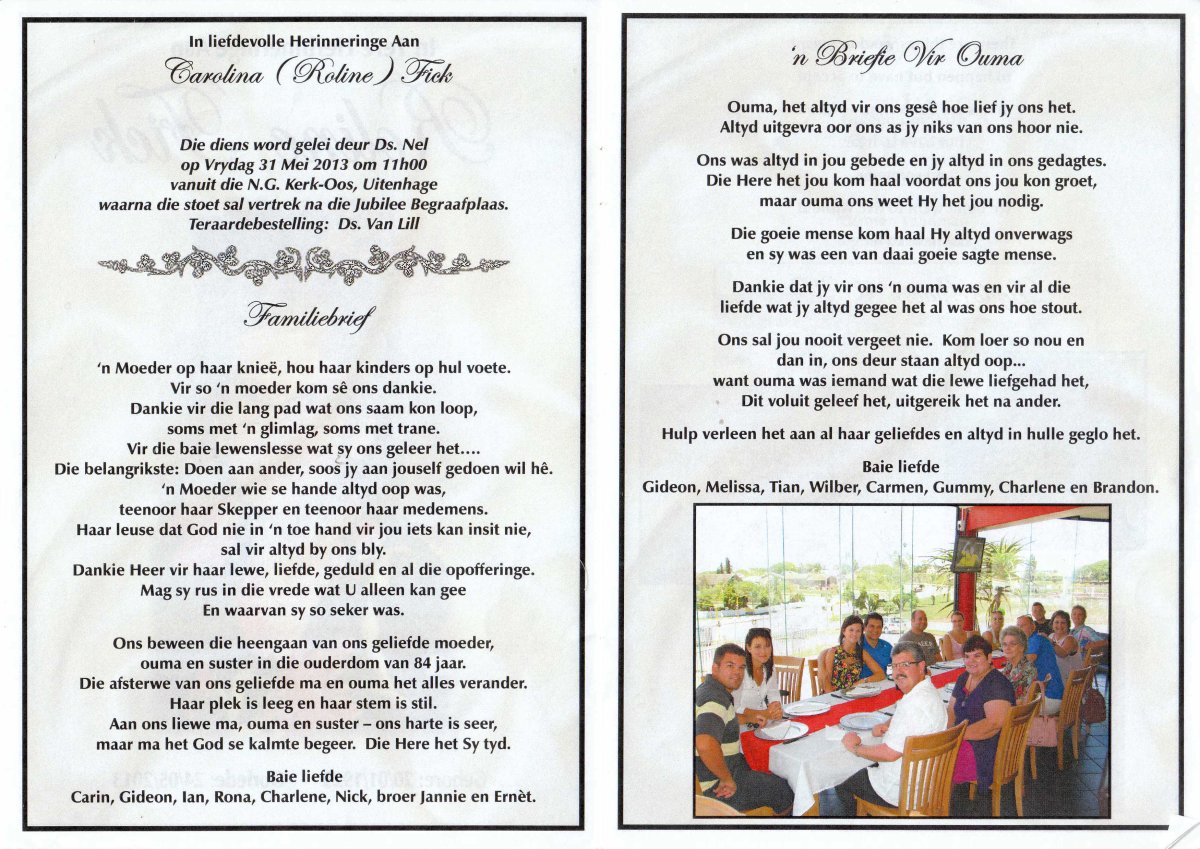 In liefdevolle Herinneringe Aan
Carolina (Roline) Fick
Die diens word gelei deur Ds. Nel
op Vrydag 31 Mei 2013 om 11h00
vanuit die N.G. Kerk-Oos, Uitenhage
waarna die stoet sal vertrek na die Jubilee Begraafplaas.
Teraardebestelling:  Ds. Van Lill
Familiebrief
‘n Moeder op haar knieë, hou haar kinders op hul voete.
Vir so ‘n moeder kom sê ons dankie.
Dankie vir die lang pad wat ons saam kon loop,
soms met ‘n glimlag, soms met trane.
Vir die baie lewenslesse wat sy ons geleer het….
Die belangrikste: Doen aan ander, soos jy aan jouself gedoen wil hê.
‘n Moeder wie se hande altyd oop was,
teenoor haar Skepper en teenoor haar medemens.
Haar leuse dat God nie in ‘n toe hand vir jou iets kan insit nie,
sal vir altyd by ons bly.
Dankie Heer vir haar lewe, liefde, geduld en al die opofferinge.
Mag sy rus in die vrede wat U alleen kan gee
En waarvan sy so seker was.
Ons beween die heengaan van ons geliefde moeder,
ouma en suster in die ouderdom van 84 jaar.
Die afsterwe van ons geliefde ma en ouma het alles verander.
Haar plek is leeg en haar stem is stil.
Aan ons liewe ma, ouma en suster – ons harte is seer,
maar ma het God se kalmte begeer.  Die Here het Sy tyd.
Baie liefde
Carin, Gideon, Ian, Rona, Charlene, Nick, broer Jannie en Ernèt.
‘n Briefie Vir Ouma
Ouma, het altyd vir ons gesê hoe lief jy ons het.
Altyd uitgevra oor ons as jy niks van ons hoor nie.
Ons was altyd in jou gebede en jy altyd in ons gedagtes.
Die Here het jou kom haal voordat ons jou kon groet,
maar ouma ons weet Hy het jou nodig.
Die goeie mense kom haal Hy altyd onverwags
en sy was een van daai goeie sagte mense.
Dankie dat jy vir ons ‘n ouma was en vir al die
liefde wat jy altyd gegee het al was ons hoe stout.
Ons sal jou nooit vergeet nie.  Kom loer so nou en
dan in, ons deur staan altyd oop...
want ouma was iemand wat die lewe liefgehad het,
Dit voluit geleef het, uitgereik het na ander.
Hulp verleen het aan al haar geliefdes en altyd in hulle geglo het.
Baie liefde
Gideon, Melissa, Tian, Wilber, Carmen, Gummy, Charlene en Brandon.